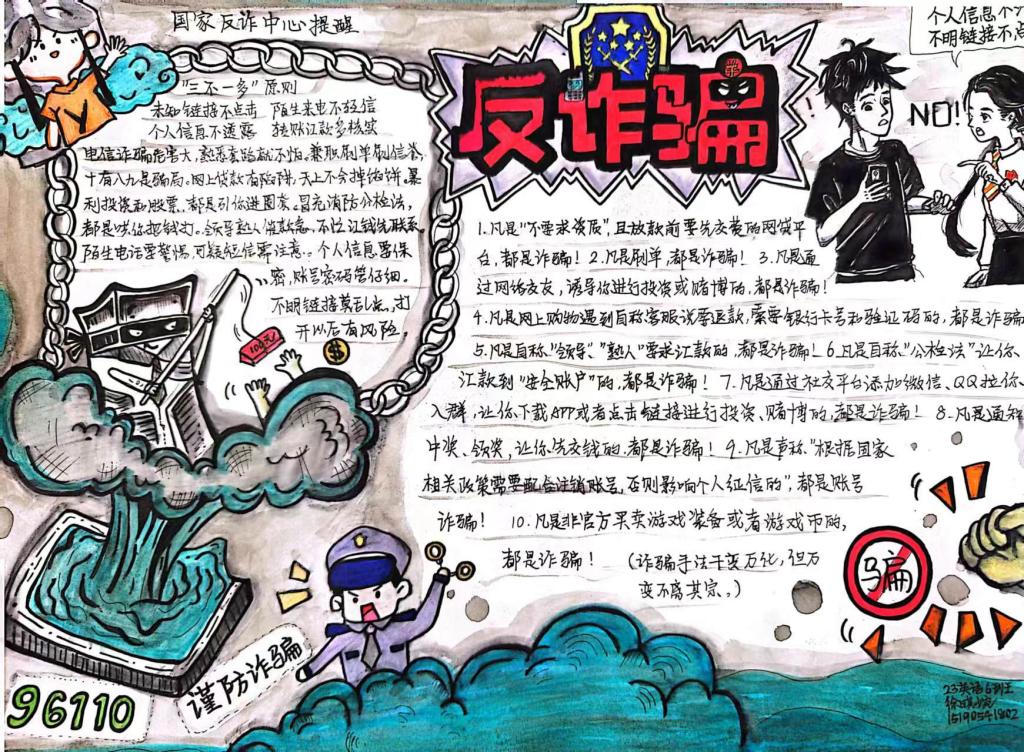 国家反诈中心提醒
"三不一多"原则
未知链接不点击 陌生来电不轻信
个人信息不透露 转账汇款多核实
电信诈骗危害大,熟悉套路就不怕。兼职刷单刷信誉,
十有八九是骗局。网上贷款有陷阱,天上不会掉馅饼。暴
利投资和股票,都是引你进圈套。冒充消防公检法,
都是唬你把钱打。领导熟人催款急,不忙让钱先联系。
陌生电话要警惕,可疑短信需注意。个人信息要保
密,账号密码管仔细。
不明链接莫乱点,打
开以后有风险。
100元
$
反诈骗
诈
个人信息不
不明链接不点
NO!
1.凡是"不要求资质",且放款前要先交费的网贷平
台,都是诈骗!2.凡是刷单,都是诈骗! 3.凡是通
过网络交友,诱导你进行投资或赌博的,都是诈骗!
4.凡是网上购物遇到自称客服说要退款,需要银行卡号和验证码的,都是诈骗
5.凡是自称"领导"、"熟人"要求汇款的,都是诈骗!6.凡是自称"公检法"让你
汇款到"安全账户"的,都是诈骗! 7.凡是通过社交平台添加微信、QQ拉你
入群,让你下载APP或者点击链接进行投资、赌博的,都是诈骗! 8.凡是通知
中奖、领奖,让你先交钱的,都是诈骗! 9.凡是声称"根据国家
相关政策需要配合注销账号,否则影响个人征信的",都是账号
诈骗! 10.凡是非官方买卖游戏装备或者游戏币的,
都是诈骗! (诈骗手法千变万化,但万
变不离其宗。)
骗
谨防诈骗
96110
23英语6班
15190541802